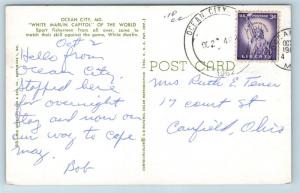 OCEAN CITY, MD.
"WHITE MARLIN CAPITOL" OF THE WORLD
Sport fishermen from all over, come to
match their skill against the game, White Marlin.
Oct 2
Hello from
Ocean City
Stopped here
for overnight
stay and now on
our way to Cape
May.
Bob
POST CARD
OCEAN CITY
OCT 2
1962
U.S. POSTAGE
3¢
LIBERTY
Mrs Ruth E. Taner
17 court st
Canfield, Ohio